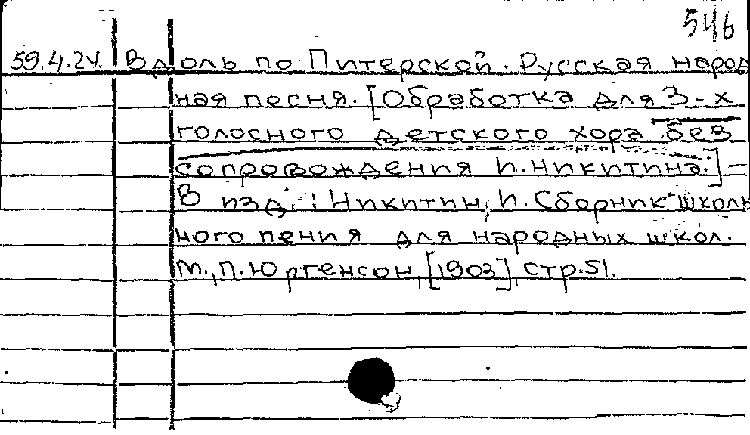 546
59.4.24. Вдоль по Питерской. Русская народ
ная песня. [Обработка для 3-х
голосного детского хора без
сопровождения И. Никитина.] –
В изд.: Никитин, И. Сборник школь
ного пения для народных школ.
М., П. Юргенсон, [1903], стр. 51.